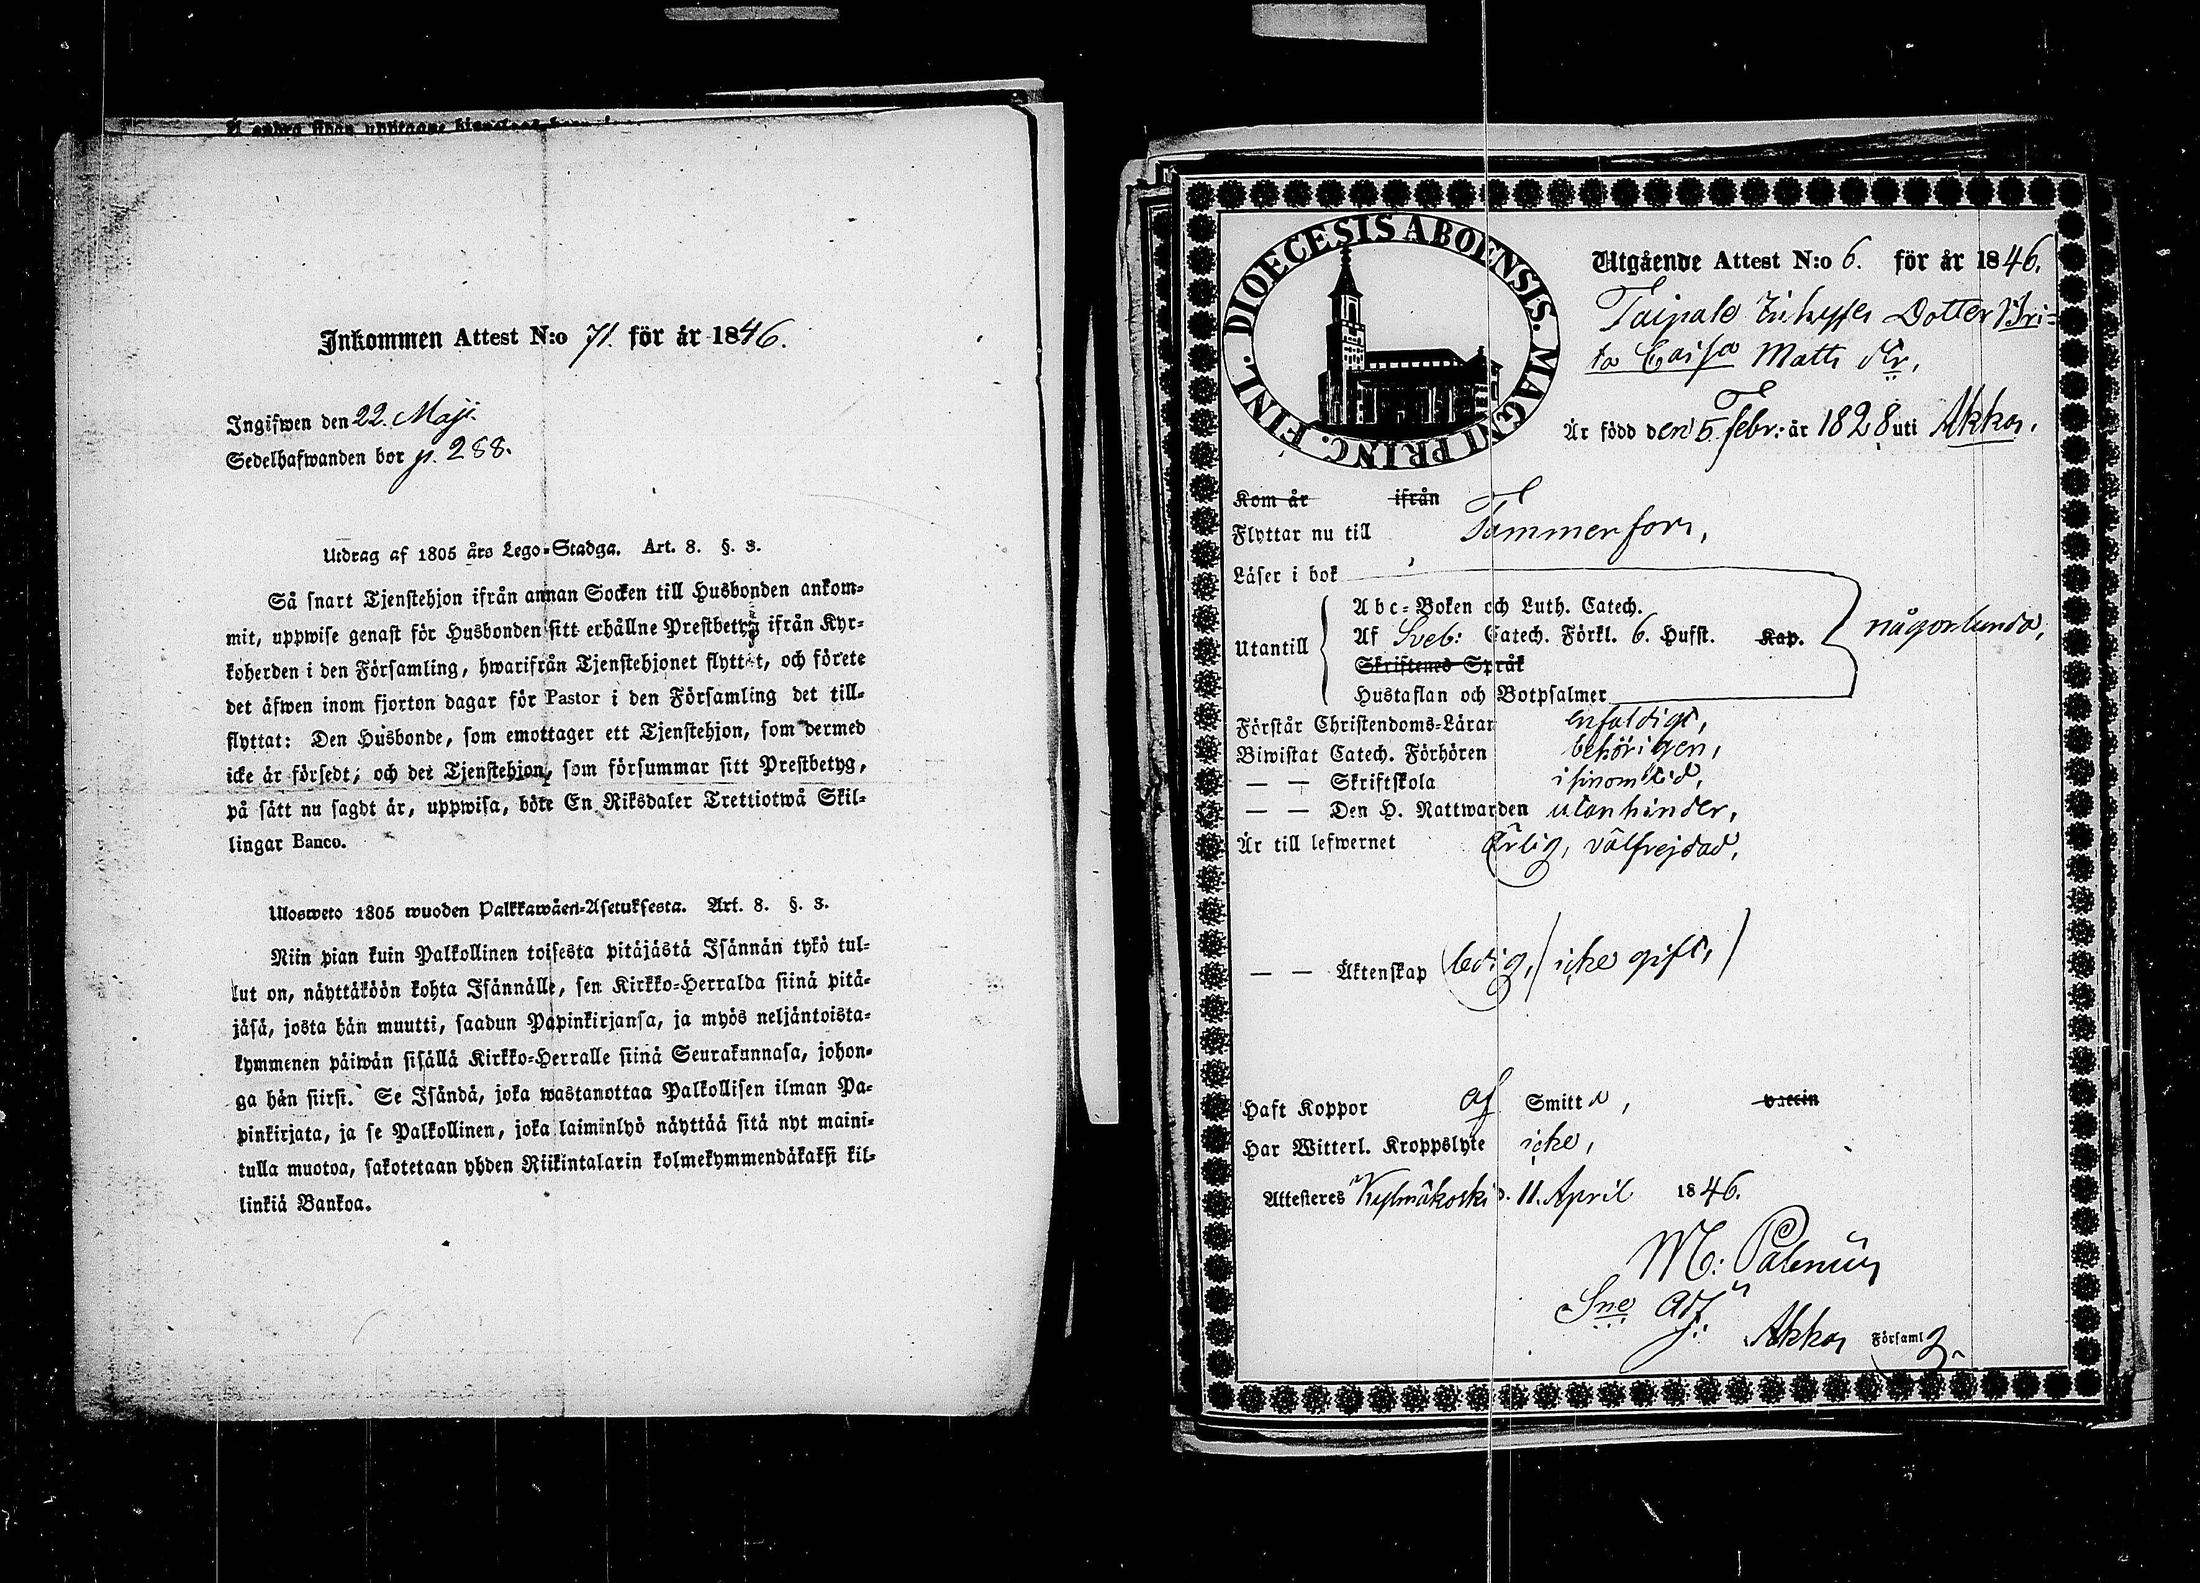 Inkommen Attest N:o 71. för år 1846.
Ingifwen den 22. Maji.
Sedelhafwanden bor p. 288.
Utdrag af 1805 års Lego-Stadga. Art. 8. §. 3.
Så snart Tjenstehjon ifrån annan Socken till Husbonden ankom-
mit, uppwise genast för Husbonden sitt erhållne Prestbetyg ifrån Kyr-
koherden i den Församling, hwarifrån Tjenstehjonet flyttat, och förete
det äfwen inom fjorton dagar för Pastor i den Församling det till-
flyttat: Den Husbonde, som emottager ett Tjenstehjon, som dermed
icke är försedt; och det Tjenstehjon, som försummar sitt Prestbetyg,
på sätt nu sagdt är, uppwisa, böte En Riksdaler Trettiotwå Skil-
lingar Banco.
Ulosweto 1805 wuoden Palkkawäen-Asetuksesta. Art. 8. §. 3.
Niin pian kuin Palkollinen toisesta pitäjästä Isännän tykö tul-
lut on, näyttäköön kohta Isännälle, sen Kirkko-Herralda siinä pitä-
jäsä, josta hän muutti, saadun Papinkirjansa, ja myös neljäntoista-
kymmenen päiwän sisällä Kirkko-Herralle siinä Seurakunnasa, johon-
ga hän siirsi. Se Isändä, joka wastanottaa Palkollisen ilman Pa-
pinkirjata, ja se Palkollinen, joka laiminlyö näyttää sitä nyt maini-
tulla muotoa, sakotetaan yhden Riikintalarin kolmekymmendäkaksi kil-
linkiä Bankoa.
DIOECESIS ABOENSIS. MAGNI PRINC. FINL.
Utgående Attest N:o 6. för år 1846.
Taipale Dotter Bri-
ta Caisa Matts dtr,
Är född den 5 Febr: år 1828 uti Akkas.
Kom år ifrån
Flyttar nu till Tammerfors,
Läser i bok
Utantill
Abc-Boken och Luth. Catech.
Af Sveb: Catech. Förkl. 6. Hufst. Kap. någorlunda,
Skriftenes Språk
Hustaflan och Botpsalmer
Förstår Christendoms-Läran enfaldigt,
Biwistat Catech. Förhören behörigen,
— — Skriftskola i sinom tid,
— — Den H. Nattwarden utan hinder,
Är till lefwernet ärlig, välfrejdad,
— — Äktenskap ledig, / icke gift, /
Haft Koppor af Smitta, vaccin
Har Witterl. Kroppslyte icke,
Attesteres Kylmäkoski d. 11. April 1846.
M: Palenius
Sne Adj:
Akkas Församlg.